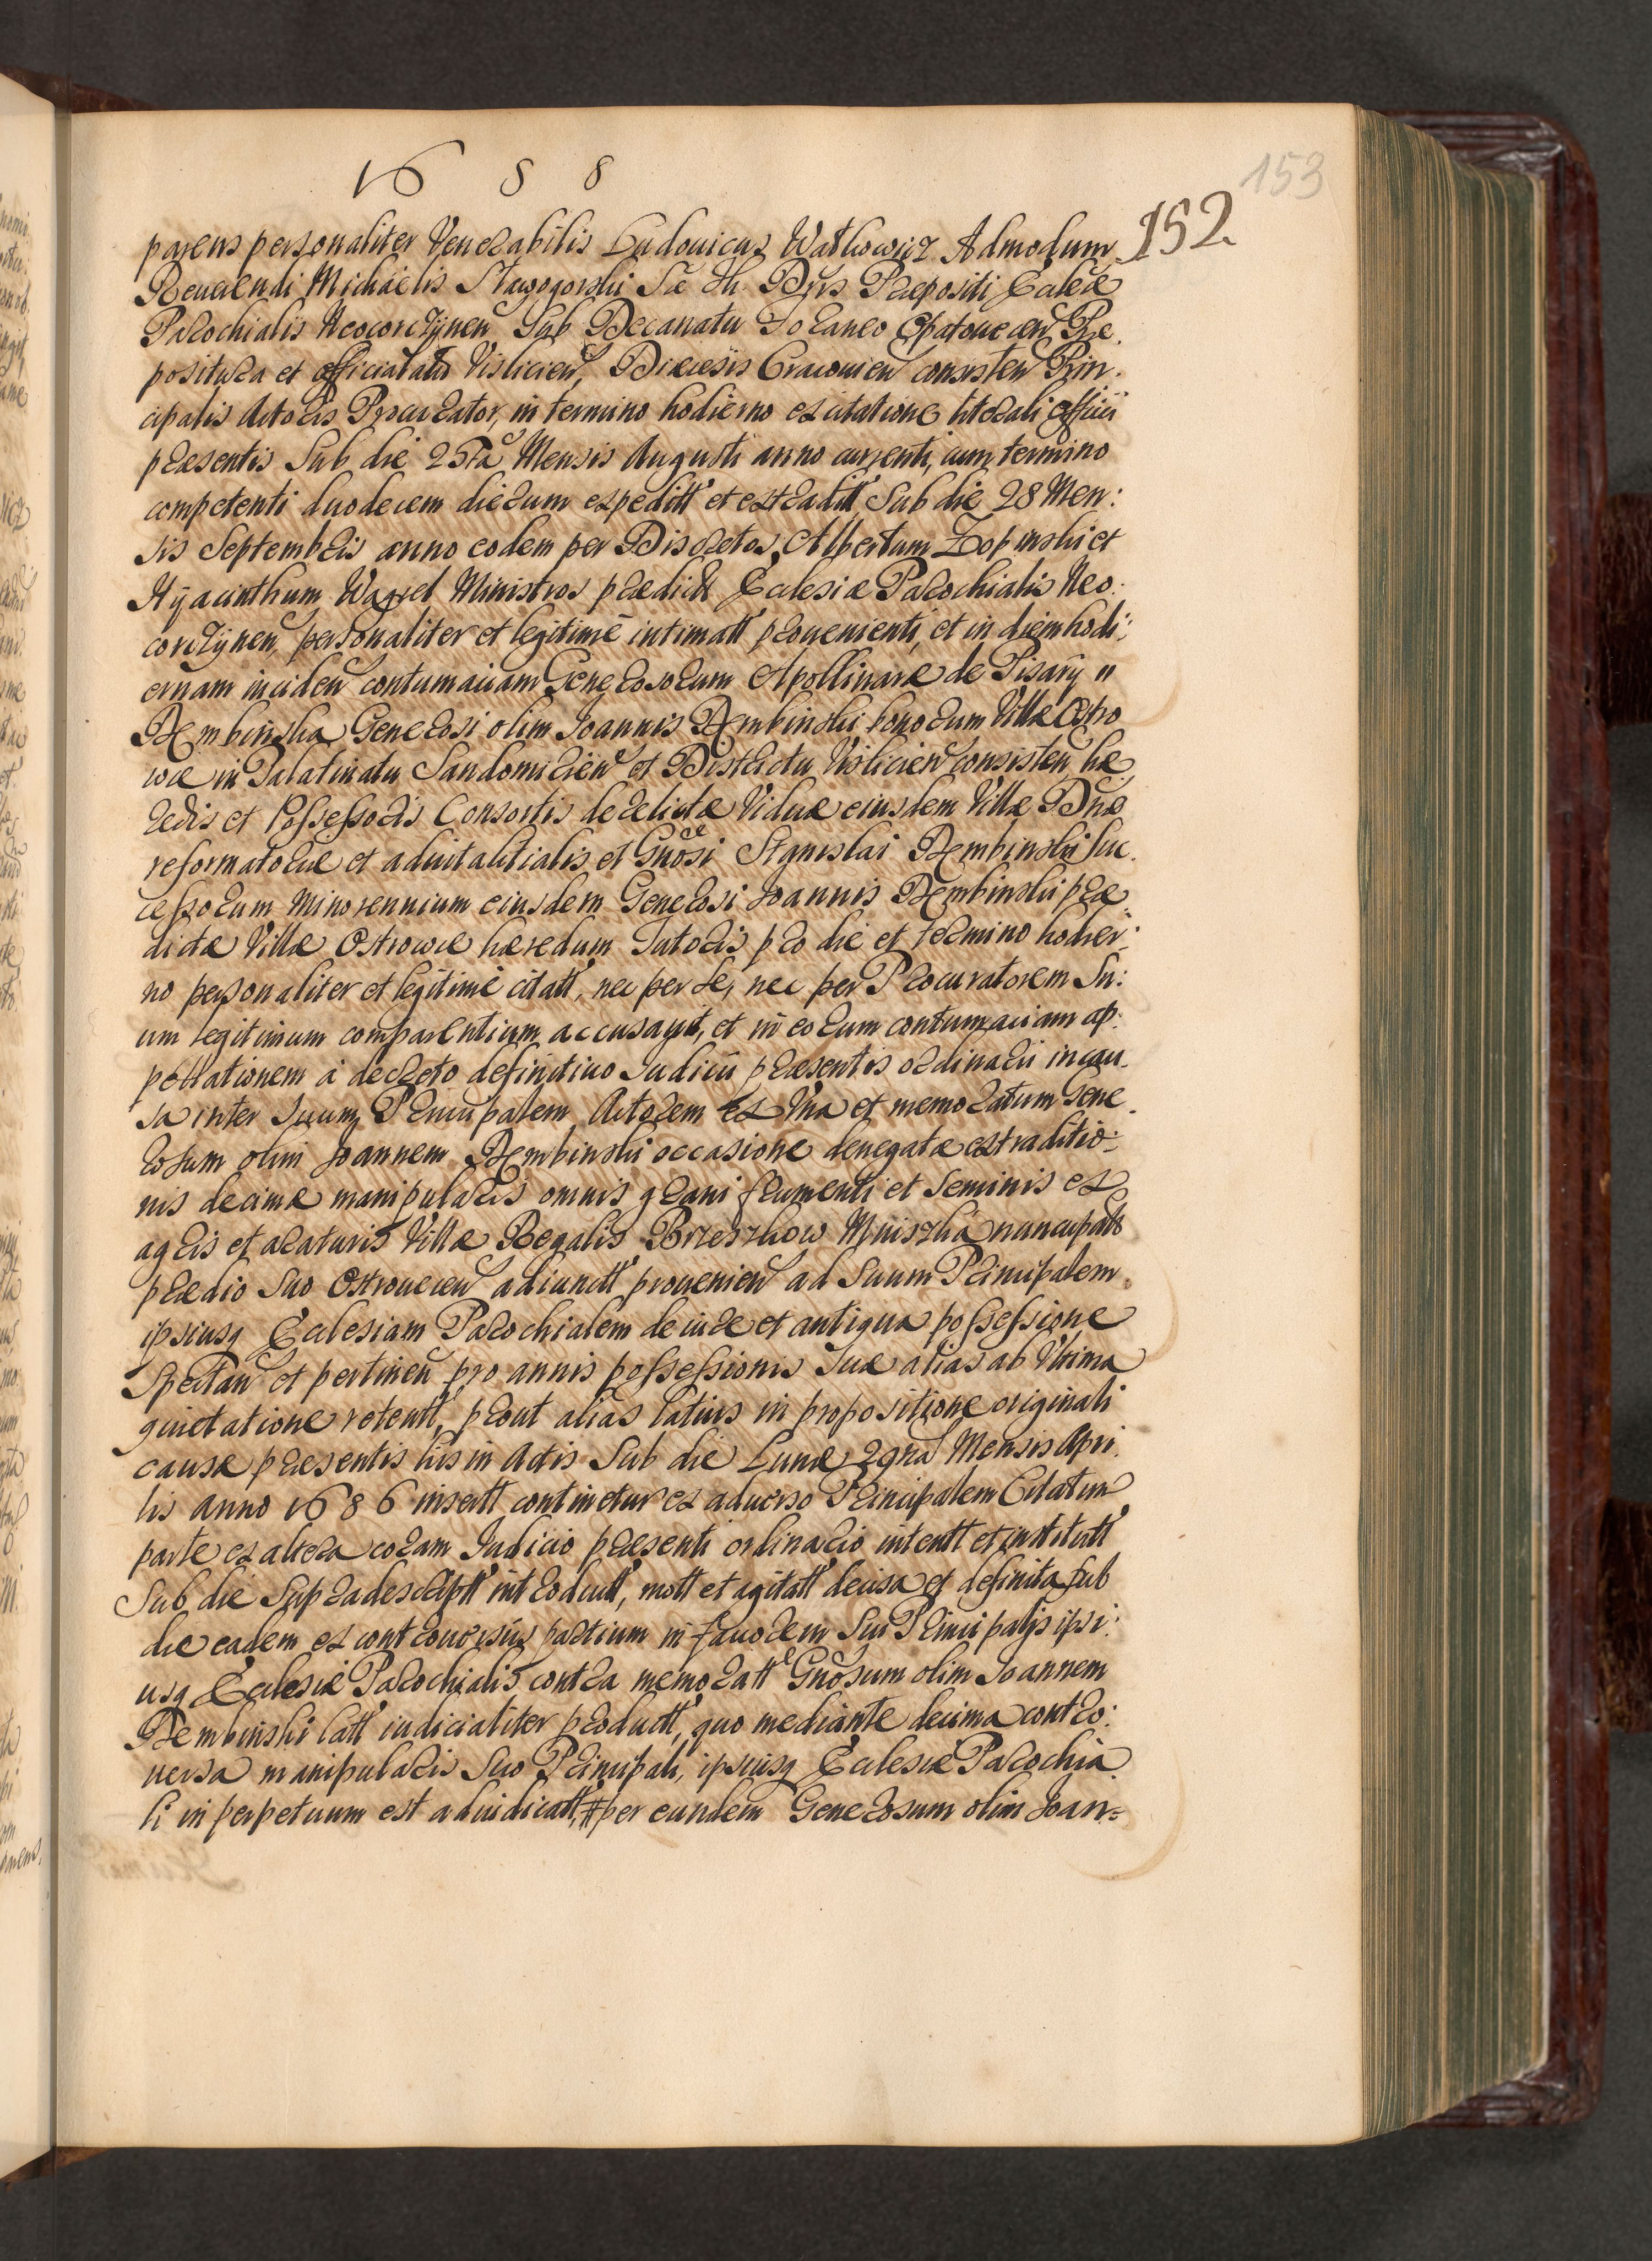 1688
153
152.
parens personaliter Venerabilis Ludouicus Watkowicz Admodum
Reuerendi Michaëlis Stawogorski Sae Th. Dris Praepositi Ecclae
Parochialis Neocorczÿnen Sub Decanatu Foraneo Opatouecen Prae
positura et officialatu Vislicien, Diaecesis Cracouien consisten Prin:
cipalis Actoris Procurator, in termino hodierno ex citatione literali officii
praesentis Sub die 25ta Mensis Augusti anno currenti, cum termino
competenti duodecem dierum expeditt et extraditt, Sub die 28 Men:
sis Septembris anno eodem per Discretos Albertum Zopinski et
Hÿacinthum Wagiel Ministros praedictt Ecclesiae Parochialis Neo:
corczÿnen, personaliter et legitimè intimatt prouenienti, et in diem hodi:
ernam inciden contumaciam Generosorum Apollinarae de Pisarÿ
Dembinska Generosi olim Joannis Dembinski bonorum Villae Ostro
wce in Palatinatu Sandomirien et Districtu Vislicien consisten hae
redis et Possessoris Consortis derelictae Viduae eiusdem Villae Dnae
reformatoriae et aduitalitialis et Gnosi Stanislai Dembinski Suc:
cessorum Minorennium eiusdem Generosi Joannis Dembinski prae
dictae Villae Ostrowce haeredum Tutoris pro die et termino hodier:
no personaliter et legitimè citatt, nec per se, nec per Procuratorem Su:
um legitimum comparentium accusauit, et in eorum contumaciam ap:
pellationem à decreto definitiuo Iudicii praesentis ordinarii in cau:
sa inter Suum Principalem Actorem ex Vna et memoratum Gene
rosum olim Joannem Dembinski occasione denegatae extraditio:
nis decimae manipularis omnis grani frumenti et seminis ex
agris et araturis Villae Regalis Brzeszkow Mniszka nuncupatt
praedio Suo Ostrouecen adiunctt prouenien ad Suum Principalem
ipsiusq Ecclesiam Parochialem de iure et antiqua possessione
Spectan et pertinen pro annis possessionis Suae alias ab Vltima
quietatione retentt, prout alias latius in propositione originali
causae praesentis his in Actis Sub die Lunae 29na Mensis Apri
lis anno 1686 insertt continetur ex aduerso Principalem Citatum
parte ex altera coram Iudicio praesenti ordinario intentt et institutt
Sub die Supradescriptt introductt, mott et agitatt decisa et definita sub
die eadem ex controuersiis partium in fauorem Sui Principalis ipsi:
usq Ecclesiae Parochialis contra memoratt Gnosum olim Joannem
Dembinski latt iudicialiter productt, quo mediante decima contro:
uersa manipularis Suo Principali, ipsiusq Ecclesiae Parochia
li in perpetuum est adiudicatt, # per eundem Generosum olim Joan=